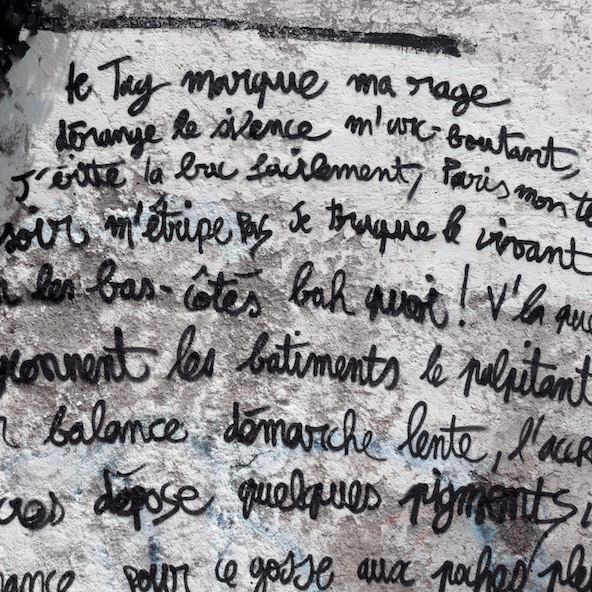 le Tag marque ma rage
dérange le silence m'arc-boutant,
J'évite la bac facilement, Paris mon te
soir m'étripe pas Je truque le vivant
les bas-côtés bah quoi! V'la que
onnent les batiments le palpitant
balance démarche lente, l'accr
dépose quelques pigments,
ance pour ce gosse aux poches ple